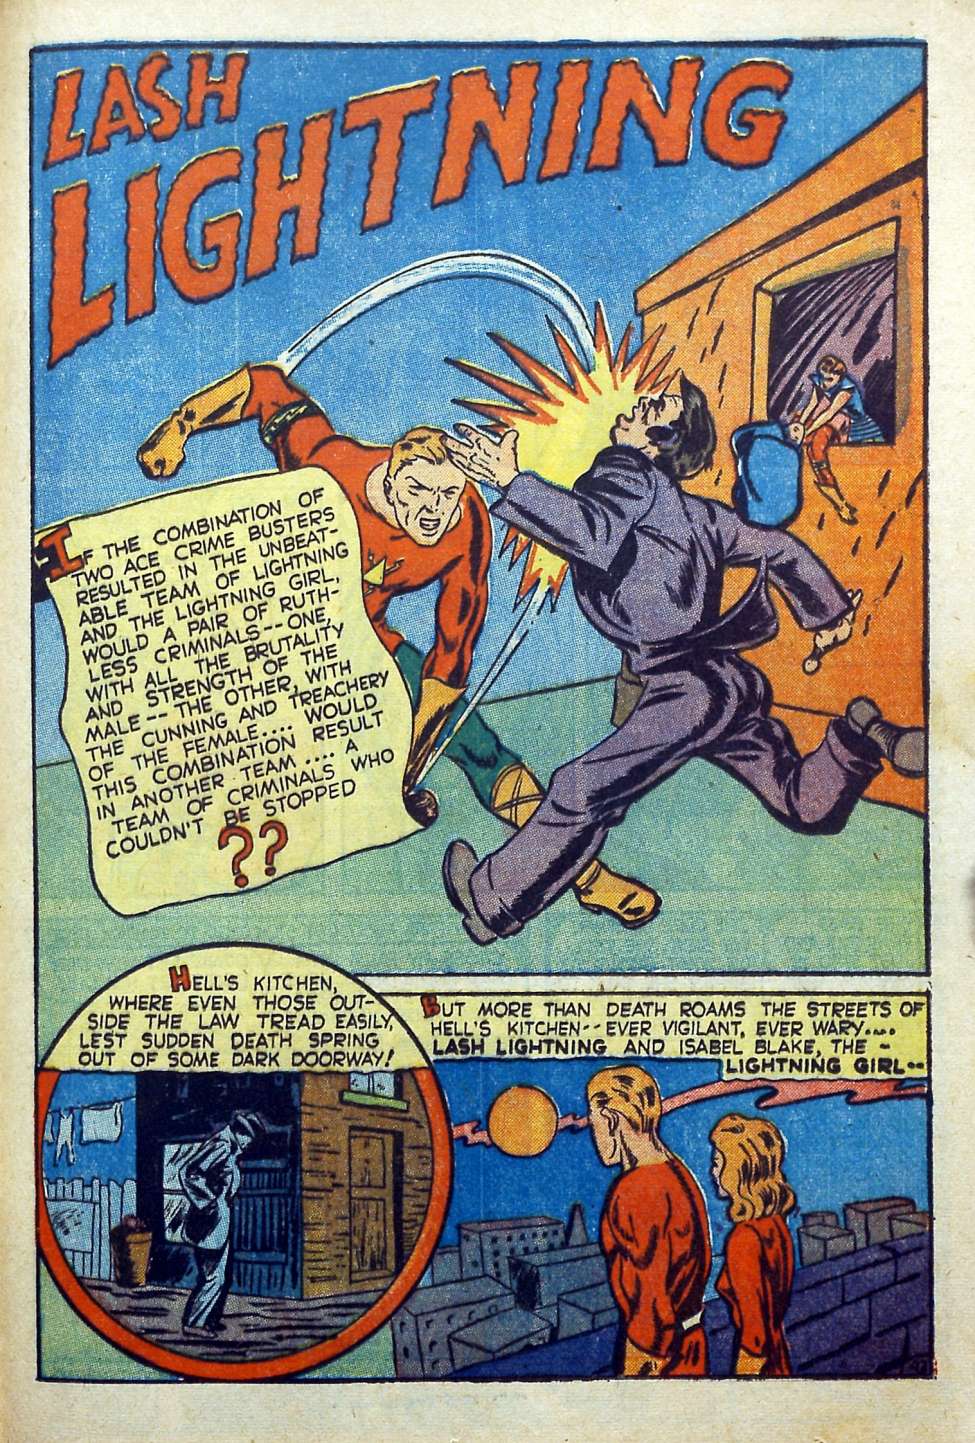 LASH
LIGHTNING
IF THE COMBINATION OF
TWO ACE CRIME BUSTERS
RESULTED IN THE UNBEAT-
ABLE TEAM OF LIGHTNING
AND THE LIGHTNING GIRL,
WOULD A PAIR OF RUTH-
LESS CRIMINALS--ONE,
WITH ALL THE BRUTALITY
AND STRENGTH OF THE
MALE--THE OTHER, WITH
THE CUNNING AND TREACHERY
OF THE FEMALE.... WOULD
THIS COMBINATION RESULT
IN ANOTHER TEAM.... A
TEAM OF CRIMINALS WHO
COULDN'T BE STOPPED
??
HELL'S KITCHEN,
WHERE EVEN THOSE OUT-
SIDE THE LAW TREAD EASILY,
LEST SUDDEN DEATH SPRING
OUT OF SOME DARK DOORWAY!
BUT MORE THAN DEATH ROAMS THE STREETS OF
HELL'S KITCHEN--EVER VIGILANT, EVER WARY....
LASH LIGHTNING AND ISABEL BLAKE, THE -
LIGHTNING GIRL--